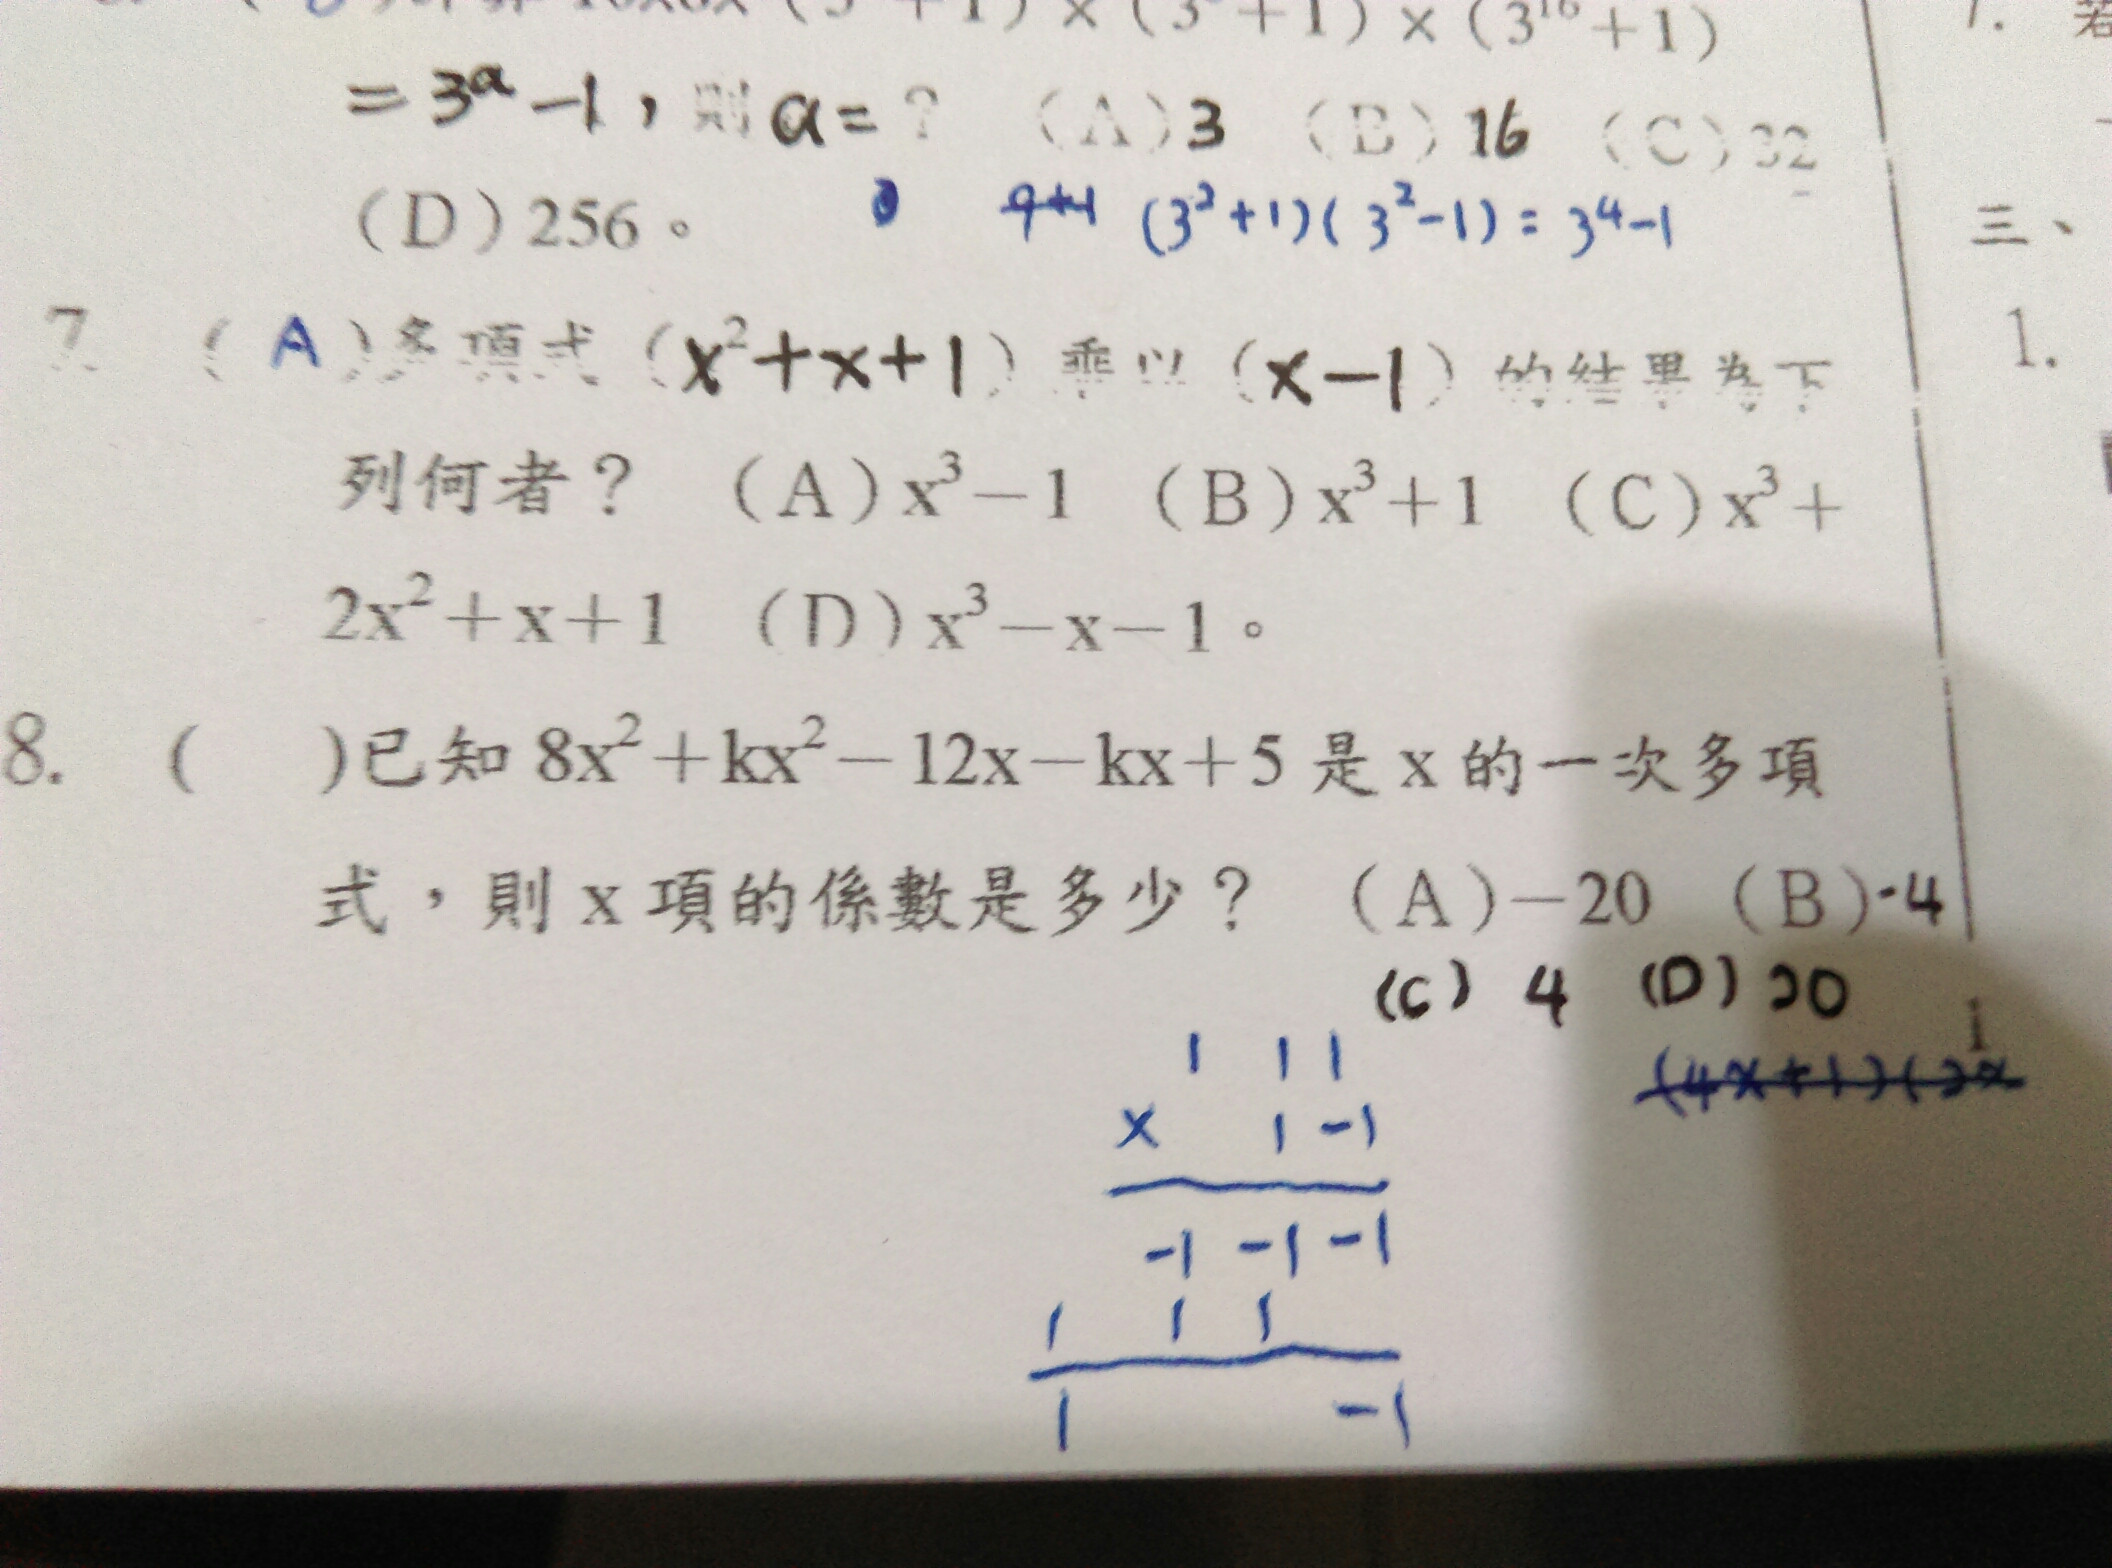 ×(3¹⁶+1)
=3ᵃ-1，則 a=？ (A)3 (B)16 (C)32
(D)256。
9+1 (3²+1)(3²-1)=3⁴-1
三、
7. (A)多項式(x²+x+1)乘以(x-1)的結果為下
列何者？ (A)x³-1 (B)x³+1 (C)x³+
2x²+x+1 (D)x³-x-1。
1.
8. ( )已知 8x²+kx²-12x-kx+5 是 x 的一次多項
式，則 x 項的係數是多少？ (A)-20 (B)-4
(C) 4 (D) 20
1 1 1
× 1 -1
-1 -1 -1
1 1 1
1 -1